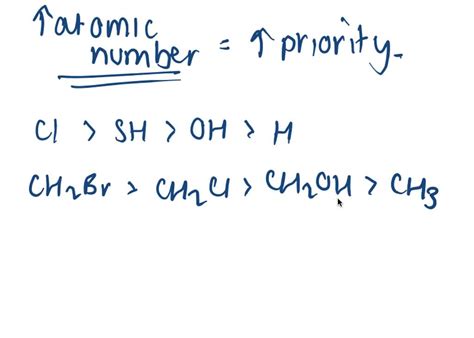 ↑ atomic
number = ↑ priority.
Cl > SH > OH > H
CH2Br > CH2Cl > CH2OH > CH3